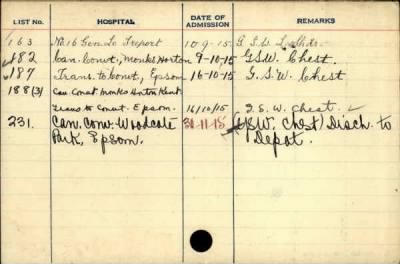 LIST No. HOSPITAL DATE OF ADMISSION REMARKS
163 No 16 Gen. Le Treport 10-9-15 G.S.W.
182 Can. Convt, Monks Horton 9-10-15 G.S.W. Chest.
187 Trans. to Convt, Epsom 16-10-15 G.S.W. Chest
188(3) Can Convt Monks Horton Kent
Trans to Convt. Epsom. 16/10/15 G.S.W. Chest.
231. Can. Conv. Woodcote 30-11-15 (GSW. Chest) Disch. to
Park, Epsom. Depot.